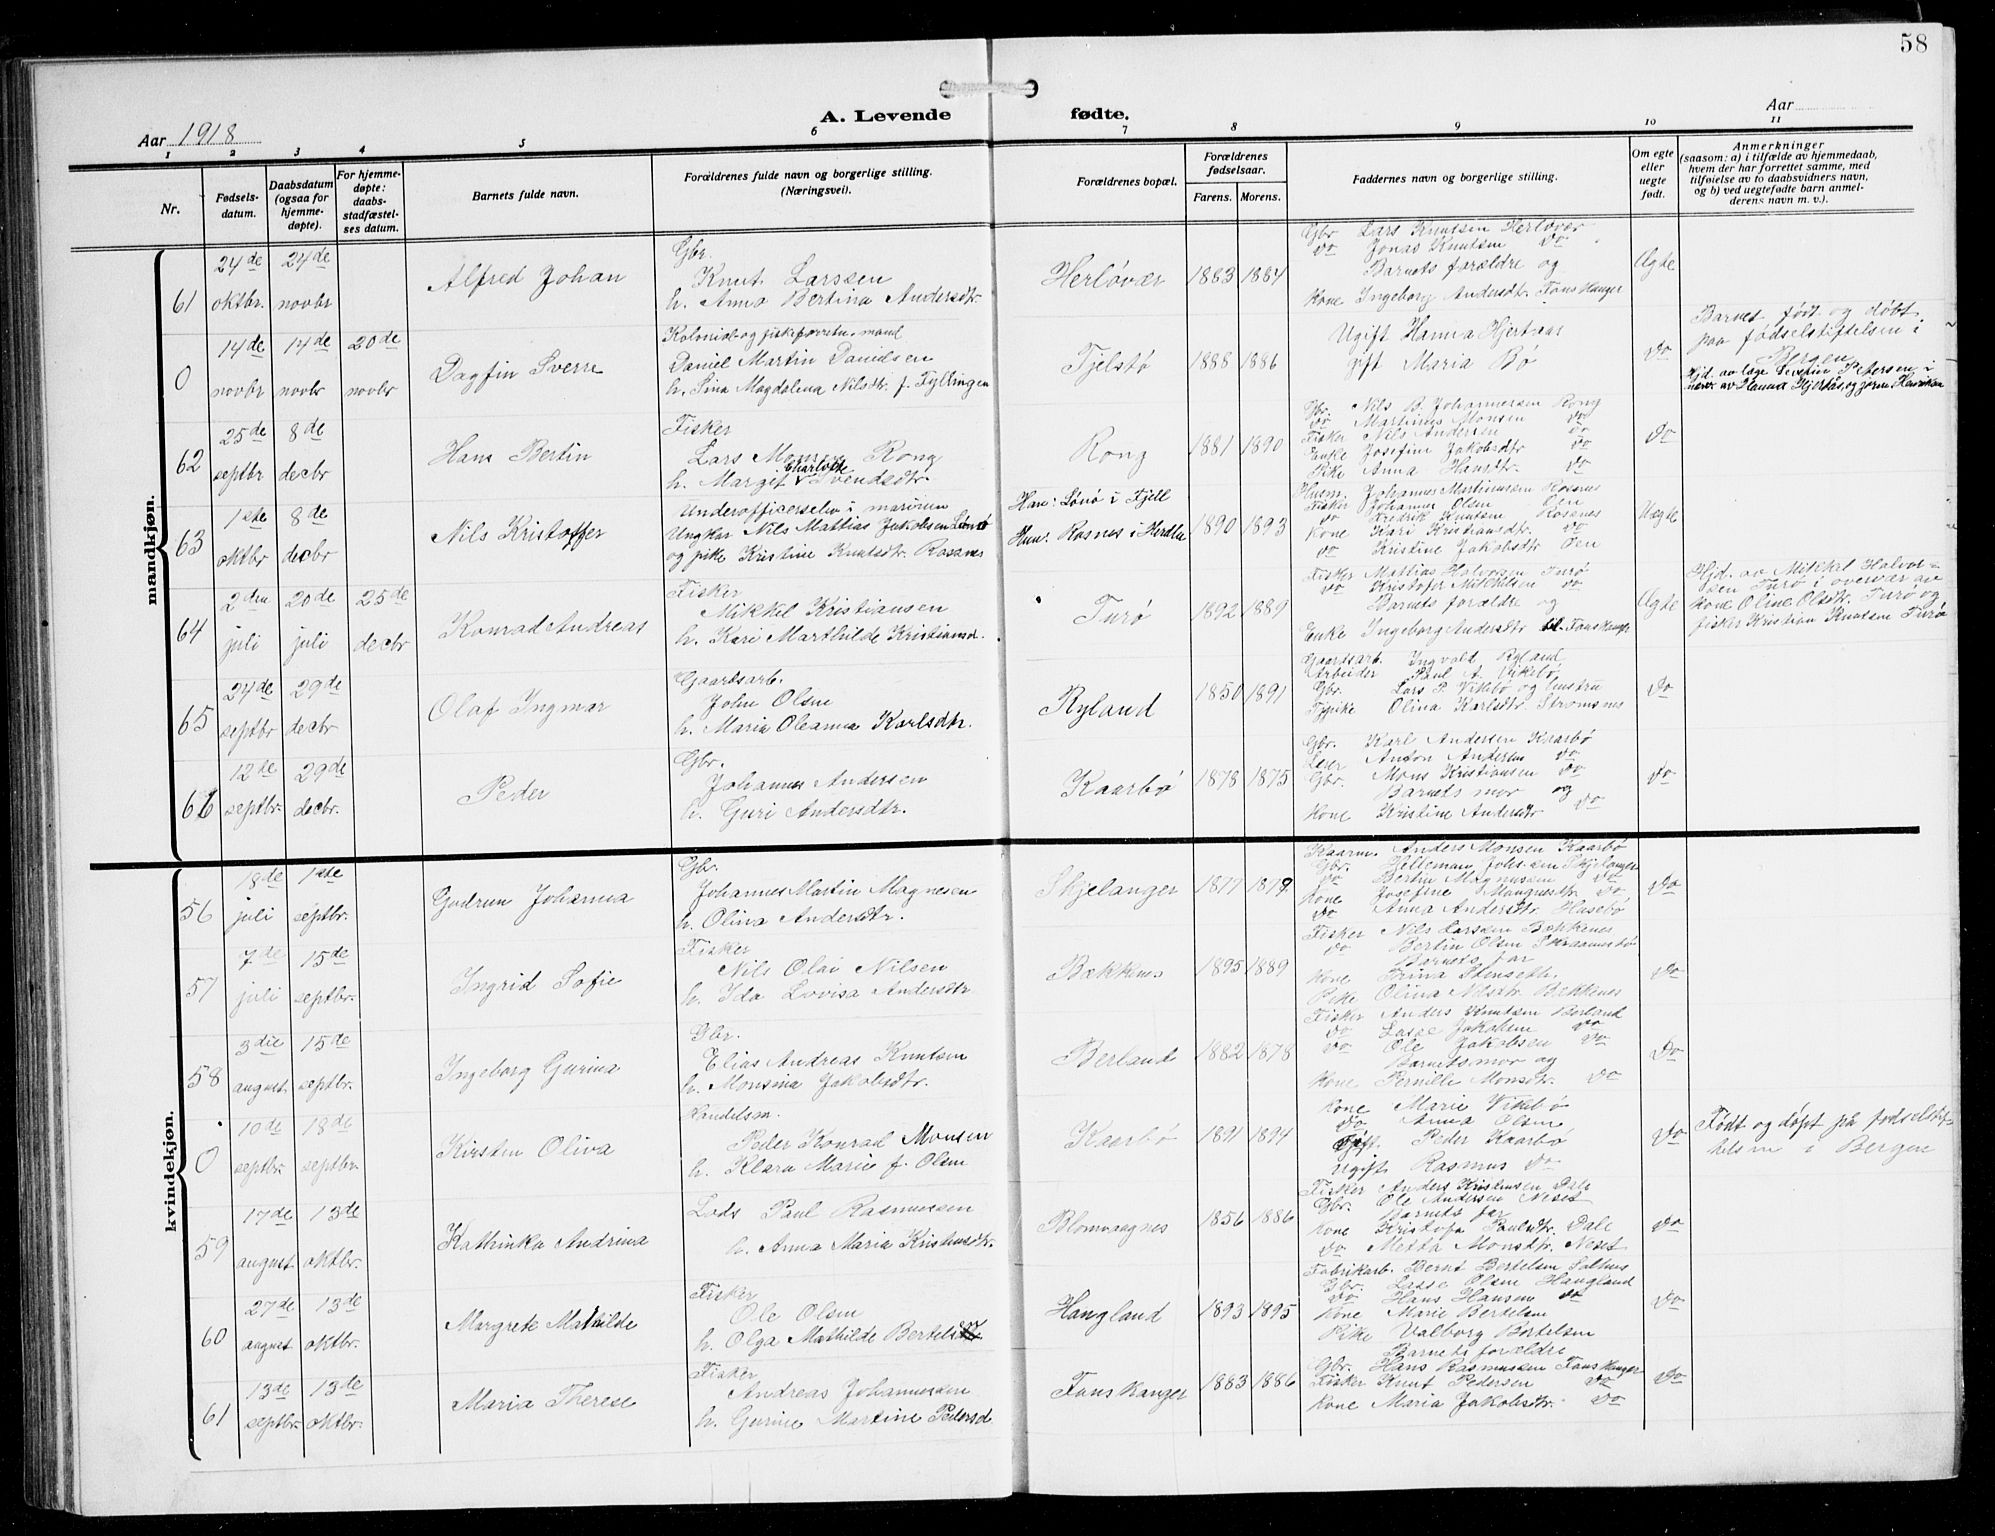 58
A. Levende fødte.
Aar 1918
Aar
1 2 3 4 5 6 7 8 9 10 11
Nr.
Fødsels-
datum.
Daabsdatum
(ogsaa for
hjemme-
døpte).
For hjemme-
døpte:
daabs-
stadfæstel-
ses datum.
Barnets fulde navn.
Forældrenes fulde navn og borgerlige stilling.
(Næringsvei).
Forældrenes bopæl.
Forældrenes
fødselsaar.
Farens. Morens.
Faddernes navn og borgerlige stilling.
Om egte
eller
uegte
født.
Anmerkninger
(saasom: a) i tilfælde av hjemmedaab,
hvem der har forrettet samme, med
tilføielse av to daabsvidners navn,
og b) ved uegtefødte barn anmel-
derens navn m. v.).
mandkjøn.
61
24de oktbr.
24de novbr
Alfred Johan
Gbr.
Knut Larssen
h. Anna Bertina Andersdtr.
Herløvær
1883 1884
Gbr Lars Knutsen Herløvær
do Jonas Knutsen do
Barnets forældre og
Kone Ingeborg Andersdtr. Fonskanger
Ægte
0
14de novbr
14de novbr
20de novbr
Dagfin Sverre
Kolonial og fiskeforretn. mand
Daniel Martin Danielsen
h. Sina Magdalena Nilsdtr. f. Fyllingen
Tjelstø
1888 1886
Ugift Hanna Hjertaas
gift Maria Bø
do
Barnet født og døbt
paa fødselstiftelsen i
Bergen
Hjd. av læge Severin Petersen i
nærv. av Hanna Hjertås, og jorm. Henriksen
62
25de septbr
8de decbr
Hans Bertin
Fisker
Lars Monsen Rong
h. Margit Charlotte Svendsdtr.
Rong
1881 1890
Gbr. Nils B. Johannessen Rong
do Martinus Monsen do
Fisker Nils Andersen do
Enke Josefine Jakobsdtr do
Pike Anna Hansdtr. do
do
63
1ste oktbr
8de decbr
Nils Kristoffer
Underofficerselev i marinen
Ungkar Nils Mattias Jakobsen Lønø
og pike Kristine Knutsdtr. Rosnes
Han: Lønø i Fjell
Hun: Rosnes i Herdla
1890 1893
Husm. Johannes Martinussen Rosnes
Fisker Johannes Olsen Øen
do Fredrik Knutsen Rosenes
Kone Kari Kristiansdtr. do
do Kristine Jakobsdtr Øen
Uegte
64
2den juli
20de juli
25de decbr
Konrad Andreas
Fisker
Mikkel Kristiansen
h. Kari Marthilde Kristiansd.
Turø
1892 1889
Fisker Mattias Halvorsen Turø
do Kristofer Mikkelsen do
Barnets forældre og
Enke Ingeborg Andersdtr Fonskanger
Ægte
Hjd. av Mikkel Halvor-
sen Turø i overvær av
kone Oline Olsdtr. Turø og
fisker Kristian Knutsen Turø
65
24de septbr
29de decbr
Olaf Ingmar
Gaardsarb.
John Olsen
h. Maria Oleanna Karlsdtr.
Ryland
1850 1891
Gaardsarb. Ingvald Ryland
Arbeider Paul A. Vikebø
Gbr. Lars P. Vikebø og hustru
Tjpike Olina Karlsdtr. Strømsnes
do
66
12de septbr.
29de decbr.
Peder
Gbr.
Johannes Andersen
h. Guri Andersdtr.
Kaarbø
1878 1875
Gbr. Karl Andersen Kaarbø
Leier Anton Andersen do
Gbr. Mons Kristiansen do
Barnets mor og
Kone Kristine Andersdtr do
do
kvindekjøn.
56
18de juli
1ste septbr.
Gudrun Johanna
Gbr.
Johannes Martin Magnesen
h. Olina Andersdtr.
Skjelanger
1877 1879
Kaarm. Anders Monsen Kaarbø
Gbr. Helleman Johssen Skjelanger
do Bertin Magnussen do
Kone Josefine Mangnesdtr. do
do Anna Andersdtr. Husebø
do
57
7de juli
15de septbr.
Ingrid Sofie
Fisker
Nils Olai Nilsen
h. Ida Lovisa Andersdtr
Bækknes
1895 1889
Fisker Nils Larssen Bækkenes
do Bertin Olsen Skraamestø
Barnets far
Kone Trina Stenseth
Pike Olina Nilsdtr. Bækkenes
do
58
3die august.
15de septbr.
Ingeborg Gurina
Gbr.
Elias Andreas Knutsen
h. Monsina Jakobsdtr.
Berland
1882 1878
Fisker Anders Knutsen Berland
do Lasse Jakobsen do
do Ole Jakobsen do
Barnets mor og
Kone Pernille Monsdtr. do
do
0
10de septbr
18de septbr.
Kirsten Oliva
Handelsm.
Peder Konrad Monsen
h. Klara Marie f. Olsen
Kaarbø
1891 1894
Kone Marie Vikebø
do Anna Olsen
Gift. Peder Kaarbø
Ugift Rasmus do
do
Født og døpt på fødselstif-
telsen i Bergen
59
17de august
13de oktbr.
Kathinka Andrina
Lods Paul Rasmussen
h. Anna Maria Kristensdtr.
Blomvaagnes
1856 1886
Fisker Anders Kristensen Dale
Gbr. Ole Andersen Neset
Barnets far
Kone Kristofa Paulsdtr. Dale
do Metta Monsdtr. Neset
do
60
27de august
13de oktbr.
Margrete Mathilde
Fisker
Ole Olsen
h. Olga Mathilde Bertelsen
Hangland
1893 1895
Fabrikarb. Bernt Bertelsen Salhus
Gbr. Lasse Olsen Hangland
do Hans Hansen do
Kone Marie Bertelsen
Pike Valborg Bertelsen
Barnets forældre
do
61
13de septbr.
13de oktbr.
Maria Therese
Fisker
Andreas Johannessen
h. Gurine Martine Pedersd
Fonskanger
1883 1886
Gbr. Hans Rasmussen Fonskanger
Fisker Knut Pedersen do
Kone Maria Jakobsdtr. do
do